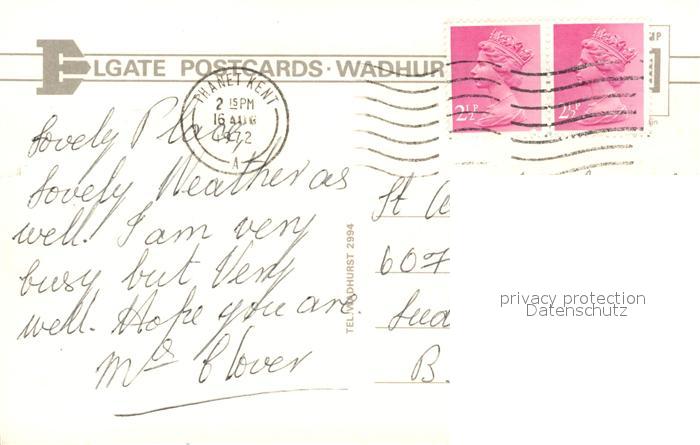 ELGATE POSTCARDS · WADHUR
THANET KENT
2 15 PM
16 AUG
1972
A
2½P
2½P
Lovely Place,
Lovely Weather as
well. I am very
busy but Very
well. Hope you are.
Mrs Clover
TEL. WADHURST 2994
St
607
B.
privacy protection
Datenschutz